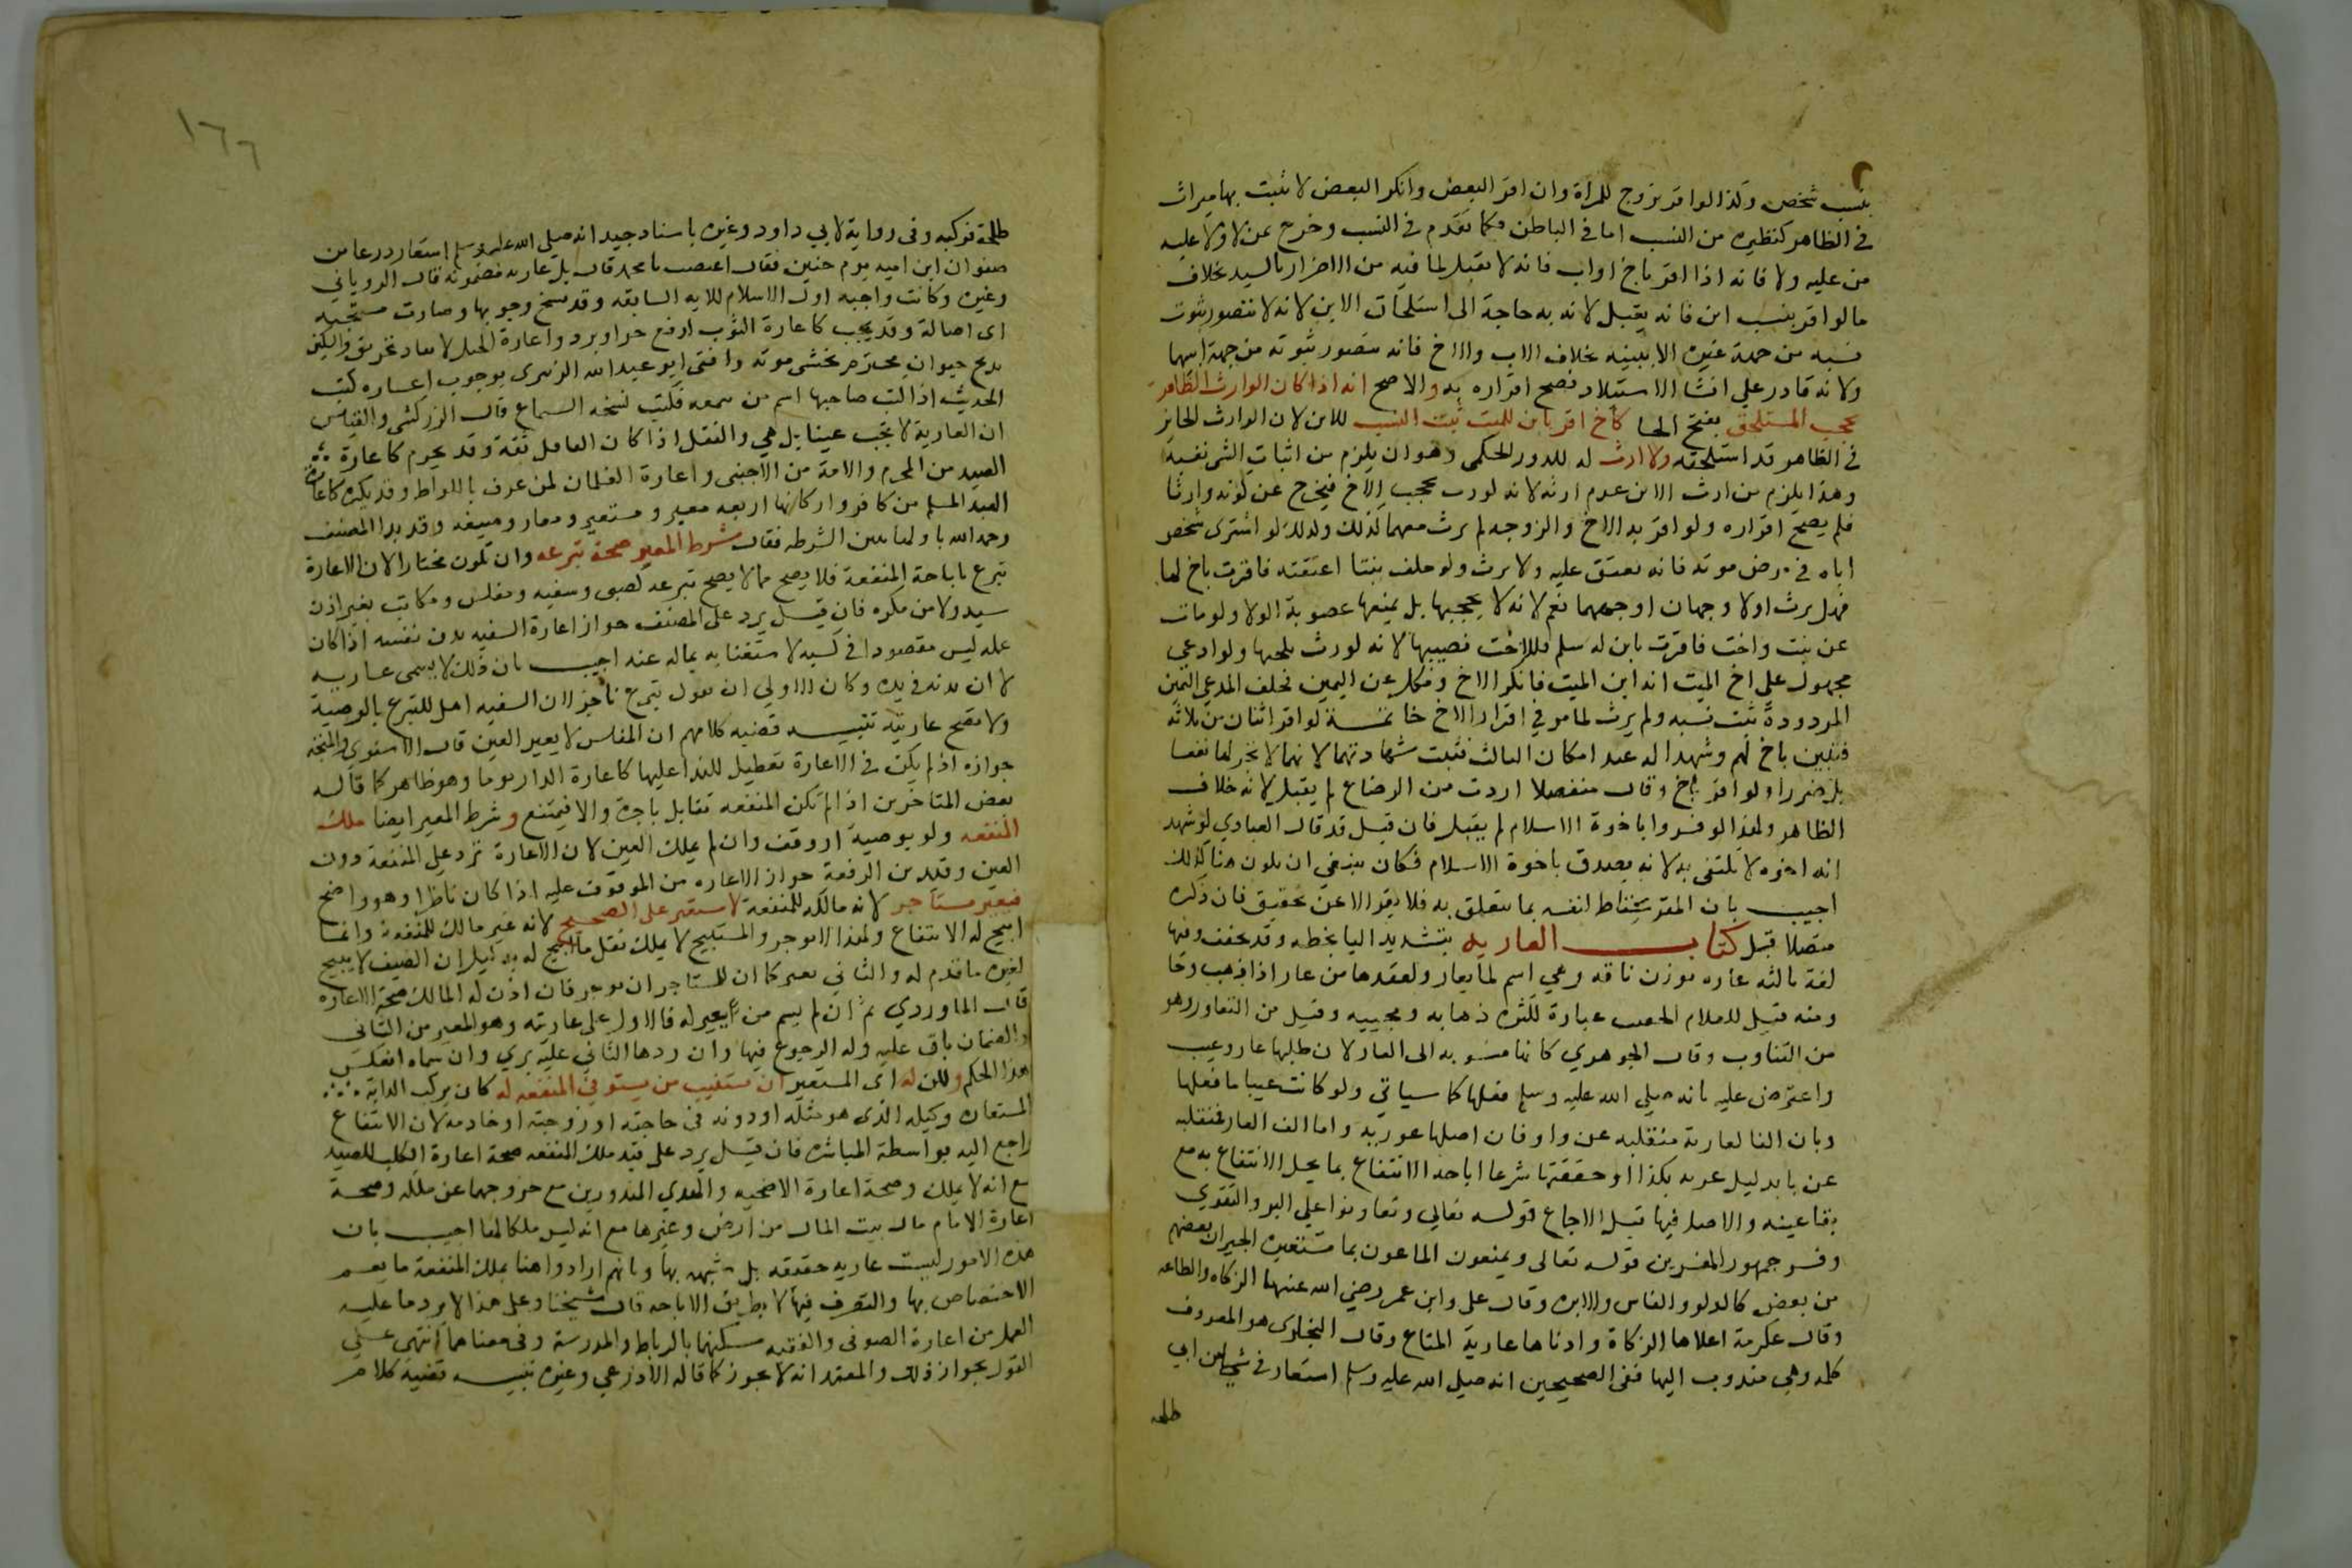 بنسب شخص وكذا لو اقر بزوج للمراة وان اقر البعض وانكر البعض لا يثبت بها ميراث
في الظاهر كنظيره من النسب اما في الباطن فكما تقدم في النسب وخرج عن لا ولا عليه
من عليه ولا فانه اذا اقر باخ او اب فانه لا يقبل لما فيه من الاضرار بالسيد بخلاف
ما لو اقر بنسب ابن فانه يقبل لانه به حاجة الى استلحاق الابن لانه لا يتصور ثبوت
نسبه من جهة غيره الا ببينه بخلاف الاب والاخ فانه يتصور ثبوته من جهة ابيهما
ولانه قادر على انشا الاستيلاد فصح اقراره به والاصح انه اذا كان الوارث الظاهر
يحجبه المستلحق بفتح الحا كاخ اقر بابن للميت ثبت النسب للابن لان الوارث الحايز
في الظاهر قد استلحقه ولا ارث له للدور الحكمي وهو ان يلزم من اثبات الشي نفيه
وهذا يلزم من ارث الابن عدم ارثه لانه لو ورث لحجب الاخ فيخرج عن كونه وارثا
فلم يصح اقراره ولو اقر به الاخ والزوجه لم يرث معهما لذلك ولذلك لو اشترى شخص
اباه في مرض موته فانه يعتق عليه ولا يرث ولو خلف بنتا اعتقته فاقرت باخ لها
فهل يرث اولا وجهان اوجههما نعم لانه لا يحجبها بل يمنعها عصوبة الولا ولو مات
عن بنت واخت فاقرت بابن له سلم للاخت نصيبها لانه لو ورث لحجبها ولو ادعي
مجهول على اخ الميت انه ابن الميت فانكر الاخ ونكل عن اليمين فحلف المدعي اليمين
المردودة ثبت نسبه ولم يرث لما مر في اقرار الاخ خاتمة لو اقر اثنان من ثلاثة
بنين باخ لهم وشهدا له عند انكار الثالث قبلت شهادتهما لانهما لا يجر لهما نفعا
بل ضررا ولو اقر باخ وقال منفصلا اردت من الرضاع لم يقبل لانه خلاف
الظاهر ولهذا لو فسر باخوة الاسلام لم يقبل فان قيل قد قال العبادي لو شهد
انه اخوه لا يكتفى به لانه يصدق باخوة الاسلام فكان ينبغي ان يكون هنا كذلك
اجيب بان المقر يحتاط لنفسه بما يتعلق به فلا يقر الا عن تحقيق فان ذكره
متصلا قبل كتاب العارية بتشديد اليا بخطه وقد تخفف وفيها
لغة ثالثه عاره بوزن ناقه وهي اسم لما يعار ولعقدها من عار اذا ذهب وجا
ومنه قيل للغلام الخفيف عيارة لكثرة ذهابه ومجييه وقيل من التعاور وهو
من التناوب وقال الجوهري كانها منسوبه الى العار لان طلبها عار وعيب
واعترض عليه بانه صلى الله عليه وسلم فعلها كما سياتي ولو كانت عيبا ما فعلها
وبان الف العارية منقلبه عن واو فان اصلها عورية واما الف العار فمنقلبه
عن يا بدليل عيرته بكذا وحقيقتها شرعا اباحة الانتفاع بما يحل الانتفاع به مع
بقا عينه والاصل فيها قبل الاجماع قوله تعالى وتعاونوا على البر والتقوى
وفسر جمهور المفسرين قوله تعالى ويمنعون الماعون بما يستعيره الجيران بعضهم
من بعض كالدلو والفاس والابره وقال علي وابن عمر رضي الله عنهما الزكاه والطاعه
وقال عكرمة اعلاها الزكاة وادناها عارية المتاع وقال البخاري هو المعروف
كله وهي مندوب اليها ففي الصحيحين انه صلى الله عليه وسلم استعار فرسا من ابي
طلحه
١٦٦
طلحة فركبه وفي رواية لابي داود وغيره باسناد جيد انه صلى الله عليه وسلم استعار درعا من
صفوان ابن اميه يوم حنين فقال اغصب يا محمد قال بل عاريه مضمونه قال الروياني
وغيره وكانت واجبه اول الاسلام للايه السابقه وقد نسخ وجوبها وصارت مستحبه
اى اصالة وقد يجب كاعارة الثوب لدفع حر او برد واعارة الحبل لانقاذ غريق والسكين
لذبح حيوان محترم يخشى موته وافتى ابو عبد الله الزبيرى بوجوب اعاره كتب
الحديث اذا كتب صاحبها اسم من سمعه ليكتب نسخه السماع قال الزركشي والقياس
ان العارية لا تجب عينا بل هي والنقل اذا كان الناقل ثقة وقد يحرم كاعارة
الصيد من المحرم والامة من الاجنبى واعارة الغلمان لمن عرف باللواط وقد يكره كاعارة
العبد المسلم من كافر واركانها اربعه معير ومستعير ومعار وصيغه وقد بدا المصنف
رحمه الله باولها مبين الشرطه فقال شرط المعير صحة تبرعه وان يكون مختارا لان الاعارة
تبرع باباحة المنفعة فلا يصح ممن لا يصح تبرعه كصبى وسفيه ومفلس ومكاتب بغير اذن
سيد ولا من مكره فان قيل يرد على المصنف جواز اعارة السفيه بدن نفسه اذا كان
عمله ليس مقصودا في كسبه لاستغنايه بماله عنه اجيب بان ذلك لا يسمى عاريه
لان بدنه في يده وكان الاولى ان يقول تبرع ناجز لان السفيه اهل للتبرع بالوصية
ولا تصح عاريته تنبيه قضيه كلامهم ان المفلس لا يعير العين قال الاسنوي والمتجه
جوازه اذا لم يكن في الاعارة تعطيل للندا عليها كاعارة الدار يوما وهو ظاهر كما قاله
بعض المتاخرين اذا لم تكن المنفعه تقابل باجرة والا فيمتنع وشرط المعير ايضا ملك
المنفعه ولو بوصية او وقف وان لم يملك العين لان الاعارة ترد على المنفعة دون
العين وقيد ابن الرفعة جواز الاعاره من الموقوف عليه اذا كان ناظرا وهو واضح
فيعير مستاجر لانه مالك للمنفعة لا مستعير على الصحيح لانه غير مالك للمنفعة وانما
ابيح له الانتفاع ولهذا لا يوجر والمستبيح لا يملك نقل ما ابيح له بدليل ان الضيف لا يبيح
لغيره ما قدم له والثاني يعير كما ان للمستاجر ان يوجر فان اذن له المالك صحة الاعارة
قال الماوردي ثم ان لم يسم من يعير له فالاول على عاريته وهو المعير من الثاني
والضمان باق عليه وله الرجوع فيها وان ردها الثاني عليه بري وان سماه انعكس
هذا الحكم ولكن له اى المستعير ان يستنيب من يستوفي المنفعه له كان يركب الدابة
المستعاره وكيله الذى هو مثله او دونه في حاجته او زوجته او خادمه لان الانتفاع
راجع اليه بواسطة المباشره فان قيل يرد على قيد ملك المنفعه صحة اعارة الكلب للصيد
مع انه لا يملك وصحة اعارة الاضحيه والهدي المنذورين مع خروجهما عن ملكه وصحة
اعارة الامام مال بيت المال من ارض وغيرها مع انه ليس ملكا لها اجيب بان
هذه الامور ليست عارية حقيقه بل شبيهه بها وبانهم ارادوا هنا بملك المنفعة ما يعم
الاختصاص بها والتصرف فيها لا بطريق الاباحه قال شيخنا وعلى هذا لا يرد ما عليه
العمل من اعارة الصوفى والفقيه مسكنهما بالرباط والمدرسة وفى معناهما انتهى على
القول بجواز ذلك والمعتمد انه لا يجوز كما قاله الاذرعي وغيره تنبيه قضية كلام